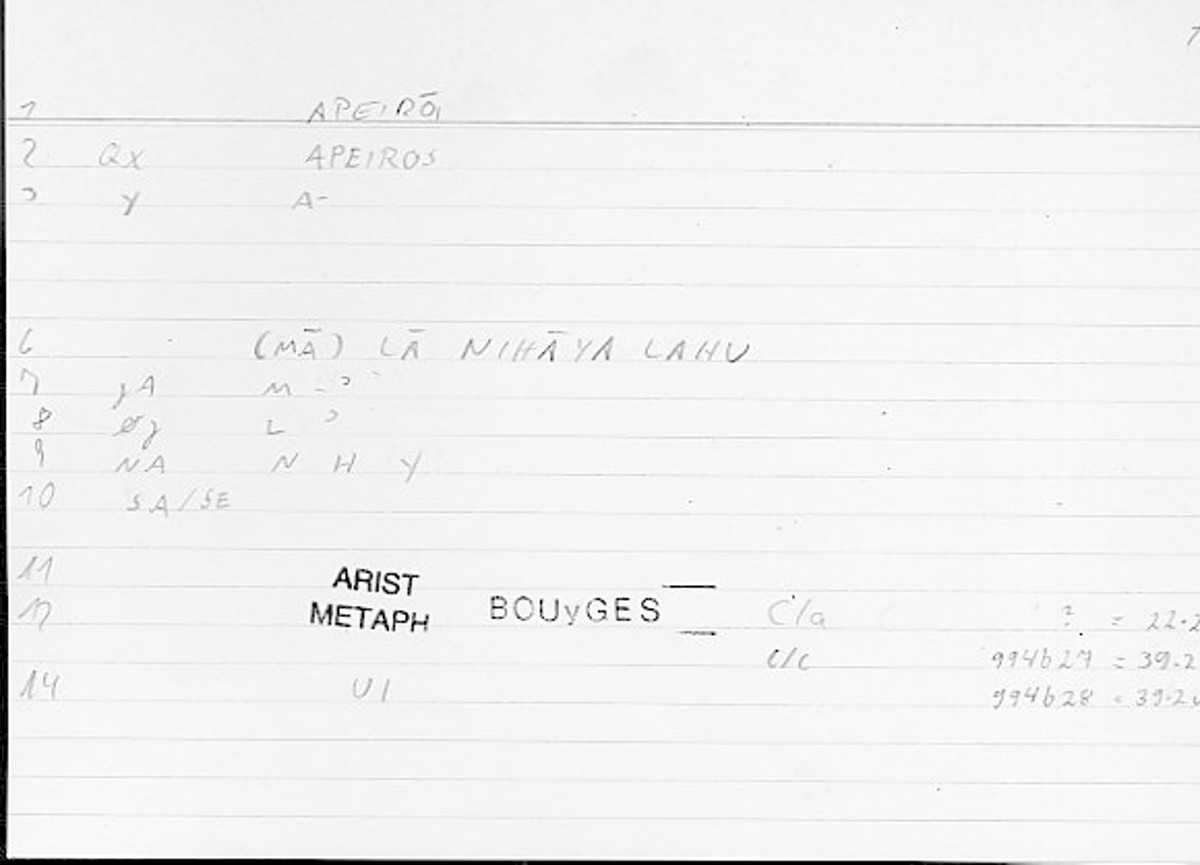 7
1 APEIRŌI
2 QX APEIROS
3 Y A-
6 (MĀ) LĀ NIHĀYA LAHU
7 JA M - ʾ
8 ØJ L ʾ
9 NA N H Y
10 SA/SE
11 ARIST
12 METAPH BOUyGES C/a ? = 22.2
c/c 994b27 = 39.2
14 U1 994b28 = 39.2